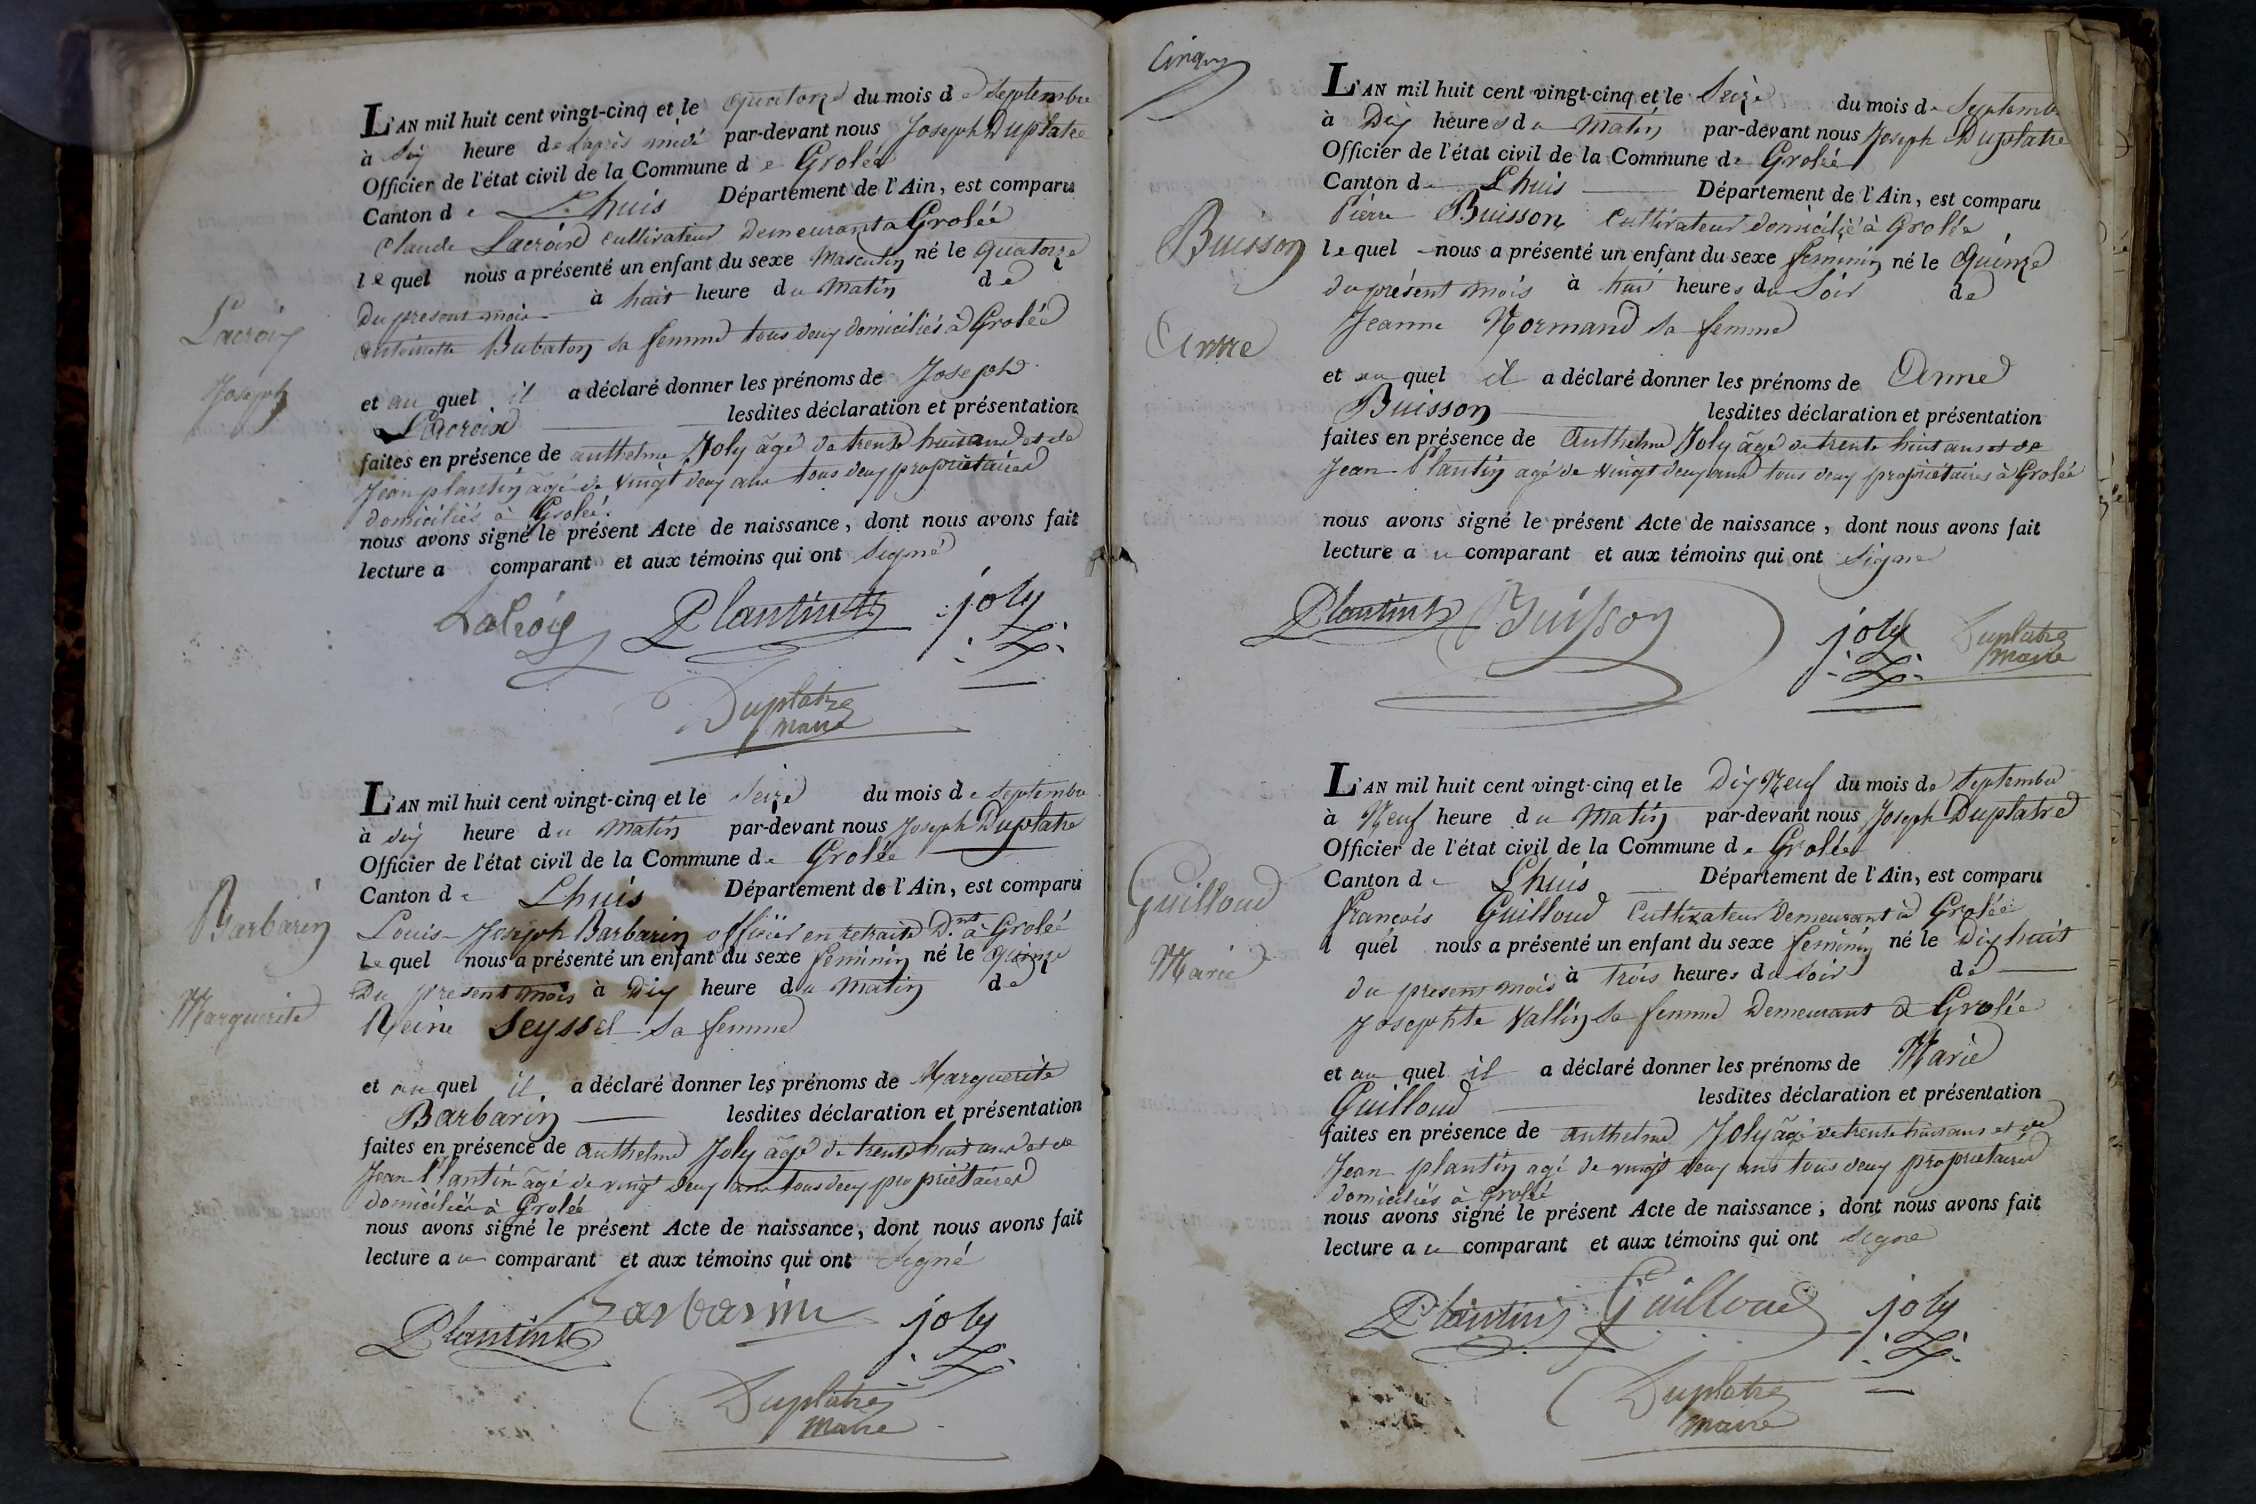 L'AN mil huit cent vingt-cinq et le quatorze du mois de Septembre
à six heure de l'après midi par-devant nous Joseph Duplatre
Officier de l'état civil de la Commune de Grolée
Canton de Lhuis Département de l'Ain, est comparu
Claude Lacroix cultivateur demeurant à Grolée
lequel nous a présenté un enfant du sexe Masculin né le quatorze
Du present mois à huit heure du Matin de
Lacroix
antoinette Bubaton sa femme tous deux domiciliés à Grolée
Joseph
et au quel il a déclaré donner les prénoms de Joseph
Lacroix lesdites déclaration et présentation
faites en présence de anthelme Joly âgé de trente huit ans et de
Jean plantin âgé de vingt deux ans tous deux propriétaires
domiciliés à Grolée.
nous avons signé le présent Acte de naissance, dont nous avons fait
lecture a comparant et aux témoins qui ont signé
Lacroix Plantin joly
Duplatre
maire
L'AN mil huit cent vingt-cinq et le Seize du mois de Septembre
à dix heure du Matin par-devant nous Joseph Duplatre
Officier de l'état civil de la Commune de Grolée
Canton de Lhuis Département de l'Ain, est comparu
Barbarin
Louis Joseph Barbarin officier en retraite D.nt à Grolée
Lequel nous a présenté un enfant du sexe feminin né le quinze
Du present mois à Dix heure du Matin de
Marguerite
Reine Seyssel sa femme
et au quel il a déclaré donner les prénoms de Marguerite
Barbarin lesdites déclaration et présentation
faites en présence de anthelme Joly âgé de trente huit ans et de
Jean Plantin âgé de vingt deux ans tous deux propriétaires
domiciliés à Grolée
nous avons signé le présent Acte de naissance, dont nous avons fait
lecture au comparant et aux témoins qui ont signé
Plantin Barbarin joly
Duplatre
maire
L'AN mil huit cent vingt-cinq et le Seize du mois de Septembre
à Dix heures du Matin par-devant nous Joseph Duplatre
Officier de l'état civil de la Commune de Grolée
Canton de Lhuis Département de l'Ain, est comparu
Pierre Buisson Cultivateur domicilié à Grolée
Buisson
lequel nous a présenté un enfant du sexe feminin né le Quinze
du présent mois à huit heures du Soir de
Jeanne Normand sa femme
Anne
et au quel il a déclaré donner les prénoms de Anne
Buisson lesdites déclaration et présentation
faites en présence de Anthelme Joly âgé de trente huit ans et de
Jean Plantin agé de vingt deux ans tous deux propriétaires à Grolée
nous avons signé le présent Acte de naissance, dont nous avons fait
lecture au comparant et aux témoins qui ont signé
Plantin Buisson joly Duplatre
maire
L'AN mil huit cent vingt-cinq et le Dix Neuf du mois de Septembre
à Neuf heure du Matin par-devant nous Joseph Duplatre
Officier de l'état civil de la Commune de Grolée
Canton de Lhuis Département de l'Ain, est comparu
Guilloud
François Guilloud Cultivateur Demeurant à Grolée
l quel nous a présenté un enfant du sexe feminin né le Dix huit
Marie
du present mois à trois heures du soir de
Josephte Vallin sa femme Demeurant à Grolée
et au quel il a déclaré donner les prénoms de Marie
Guilloud lesdites déclaration et présentation
faites en présence de anthelme Joly âgé de trente huit ans et de
Jean plantin agé de vingt deux ans tous deux propriétaires
domiciliés à Grolée
nous avons signé le présent Acte de naissance, dont nous avons fait
lecture au comparant et aux témoins qui ont signé
Plantin Guilloud joly
Duplatre
maire